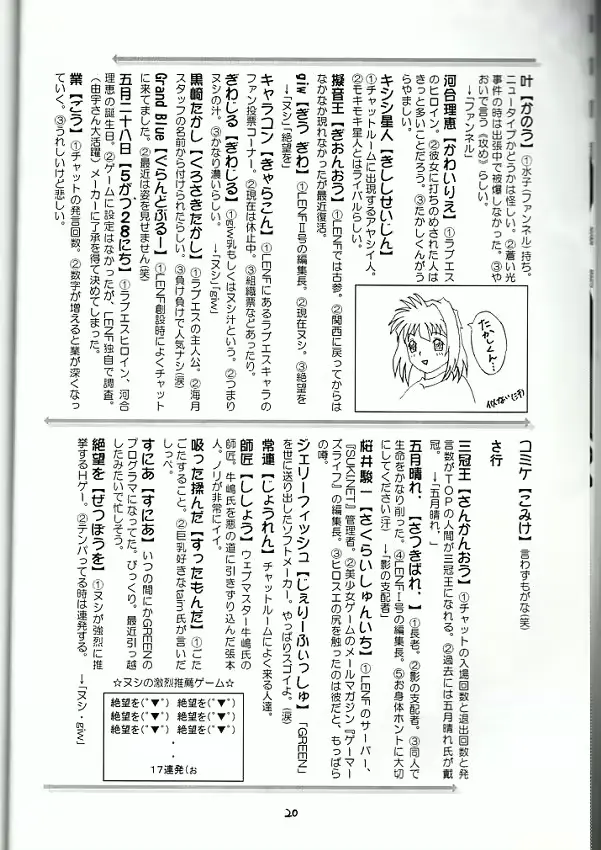 叶【かのう】 ①水子(ファンネル)持ち。
ニュータイプかどうかは怪しい。②蒼い光
事件の時は出張中で被爆しなかった。③や
おいで言う《攻め》らしい。
→「ファンネル」
河合理恵【かわいりえ】 ①ラブエス
のヒロイン。②彼女に打ちのめされた人は
きっと多いことだろう。③たかしくんがう
らやましい。
キシシ星人【きししせいじん】
①チャットルームに出現するアヤシイ人。
②モキモキ星人とはライバルらしい。
擬音王【ぎおんおう】 ①LENFでは古参。②関西に戻ってからは
なかなか現れなかったが最近復活。
giw【ぎう ぎわ】 ①LENFⅡ号の編集長。②現在ヌシ。③絶望を
→「ヌシ」「絶望を」
キャラコン【きゃらこん】 ①LENFにあるラブエスキャラの
ファン投票コーナー。②現在は休止中。③組織票などあったり。
ぎわじる【ぎわじる】 ①giw乳もしくはヌシ汁という。②つまり
ヌシの汁。③かなり濃いらしい。 →「ヌシ」「giw」
黒崎たかし【くろさきたかし】 ①ラブエスの主人公。②海月
スタッフの名前から付けられたらしい。③負け負けで人気ナシ(涙)
Grand Blue【ぐらんどぶるー】 ①LENF創設時によくチャット
に来てました。②最近は姿を見せません(笑)
五月二十八日【5がつ28にち】 ①ラブエスヒロイン、河合
理恵の誕生日。②ゲームに設定はなかったが、LENF独自で調査。
(由宇さん大活躍)メーカーに了承を得て決めてしまった。
業【ごう】 ①チャットの発言回数。②数字が増えると業が深くなっ
ていく。③うれしいけど悲しい。
たかしくん…
似ない(汗)
コミケ【こみけ】 言わずもがな(笑)
さ行
三冠王【さんかんおう】 ①チャットの入場回数と退出回数と発
言数がTOPの人間が三冠王になれる。②過去には五月晴れ氏が戴
冠。 →「五月晴れ.」
五月晴れ.【さつきばれ.】 ①長老。②影の支配者。③同人で
生命をかなり削った。④LENFⅠ号の編集長。⑤お身体ホントに大切
にしてください(汗) →「影の支配者」
桜井駿一【さくらいしゅんいち】 ①LENFのサーバー、
『SUKINET』管理者。②美少女ゲームのメールマガジン『ゲーマー
ズライフ』の編集長。③ヒロスエの尻を触ったのは彼だと、もっぱら
の噂。
ジェリーフィッシュ【じぇりーふぃっしゅ】 「GREEN」
を世に送り出したソフトメーカー。やっぱりスゴイよ。(涙)
常連【じょうれん】 チャットルームによく来る人達。
師匠【ししょう】 ウェブマスター牛嶋氏の
師匠。牛嶋氏を悪の道に引きずり込んだ張本
人。ノリが非常にイイ。
吸った揉んだ【すったもんだ】 ①ごた
ごたすること。②巨乳好きなtaim氏が言いだ
しっぺ。
すにあ【すにあ】 いつの間にかGREENの
プログラマになってた。びっくり。最近引っ越
したみたいで忙しそう。
絶望を【ぜつぼうを】 ①ヌシが強烈に推
挙するHゲー。②テンパってる時は連発する。
→「ヌシ・giw」
☆ヌシの激烈推薦ゲーム☆
絶望を(ﾟ▼ﾟ) 絶望を(ﾟ▼ﾟ)
絶望を(ﾟ▼ﾟ) 絶望を(ﾟ▼ﾟ)
絶望を(ﾟ▼ﾟ) 絶望を(ﾟ▼ﾟ)
・
・
17連発(ぉ
20